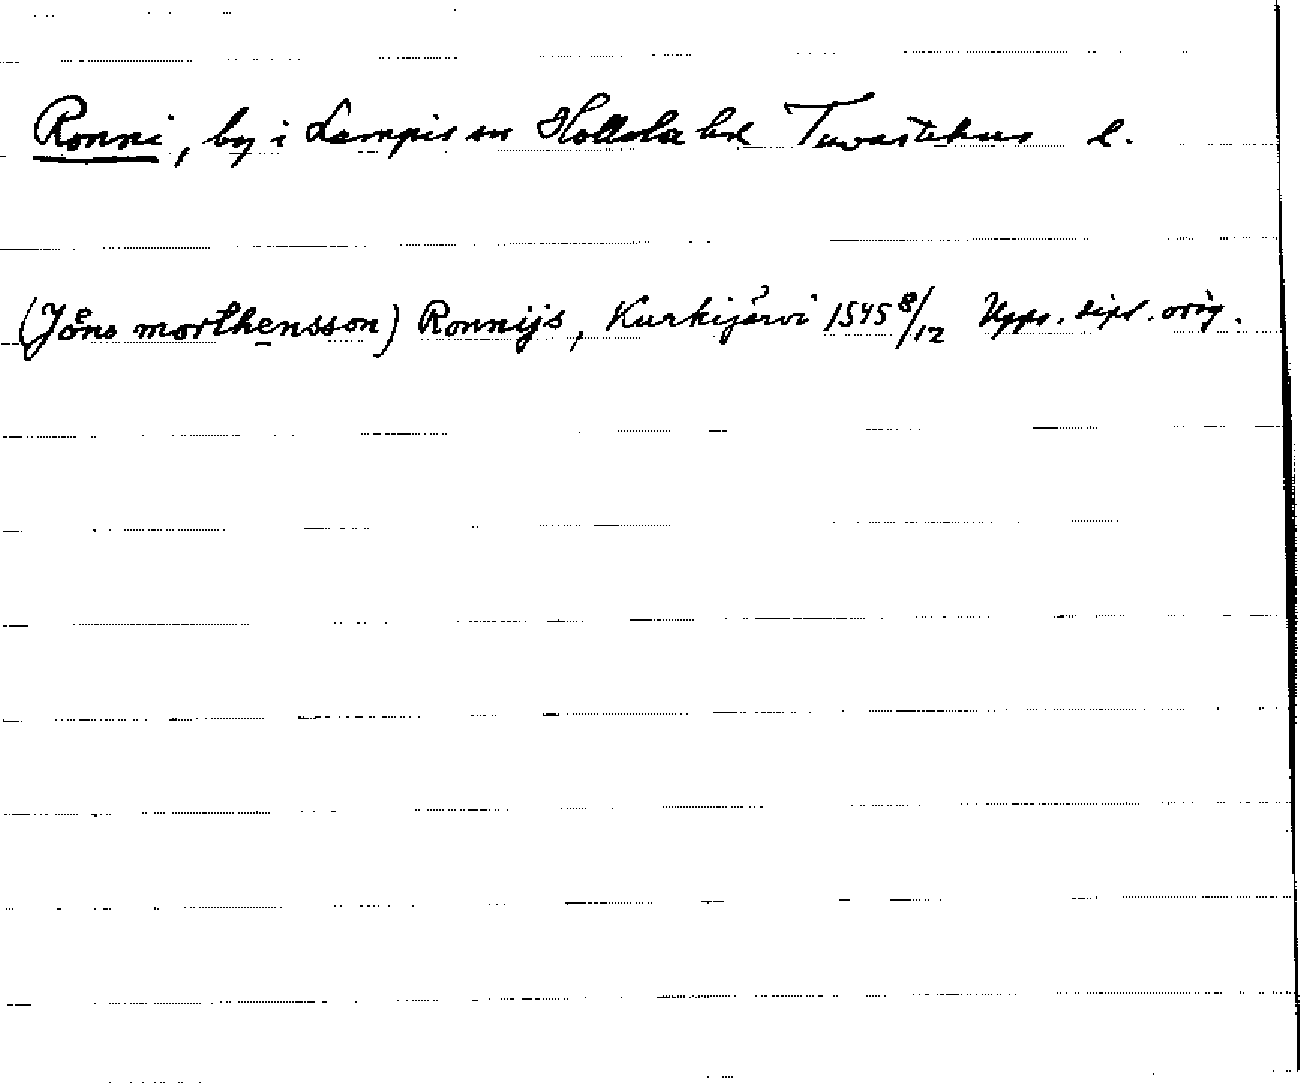 Ronni, by i Lampis sn Hollola hd Tavastehus l.
(Jöns morthensson) Ronnijs, Kurkijärvi 1545 8/12 Upps. dipl. orig.